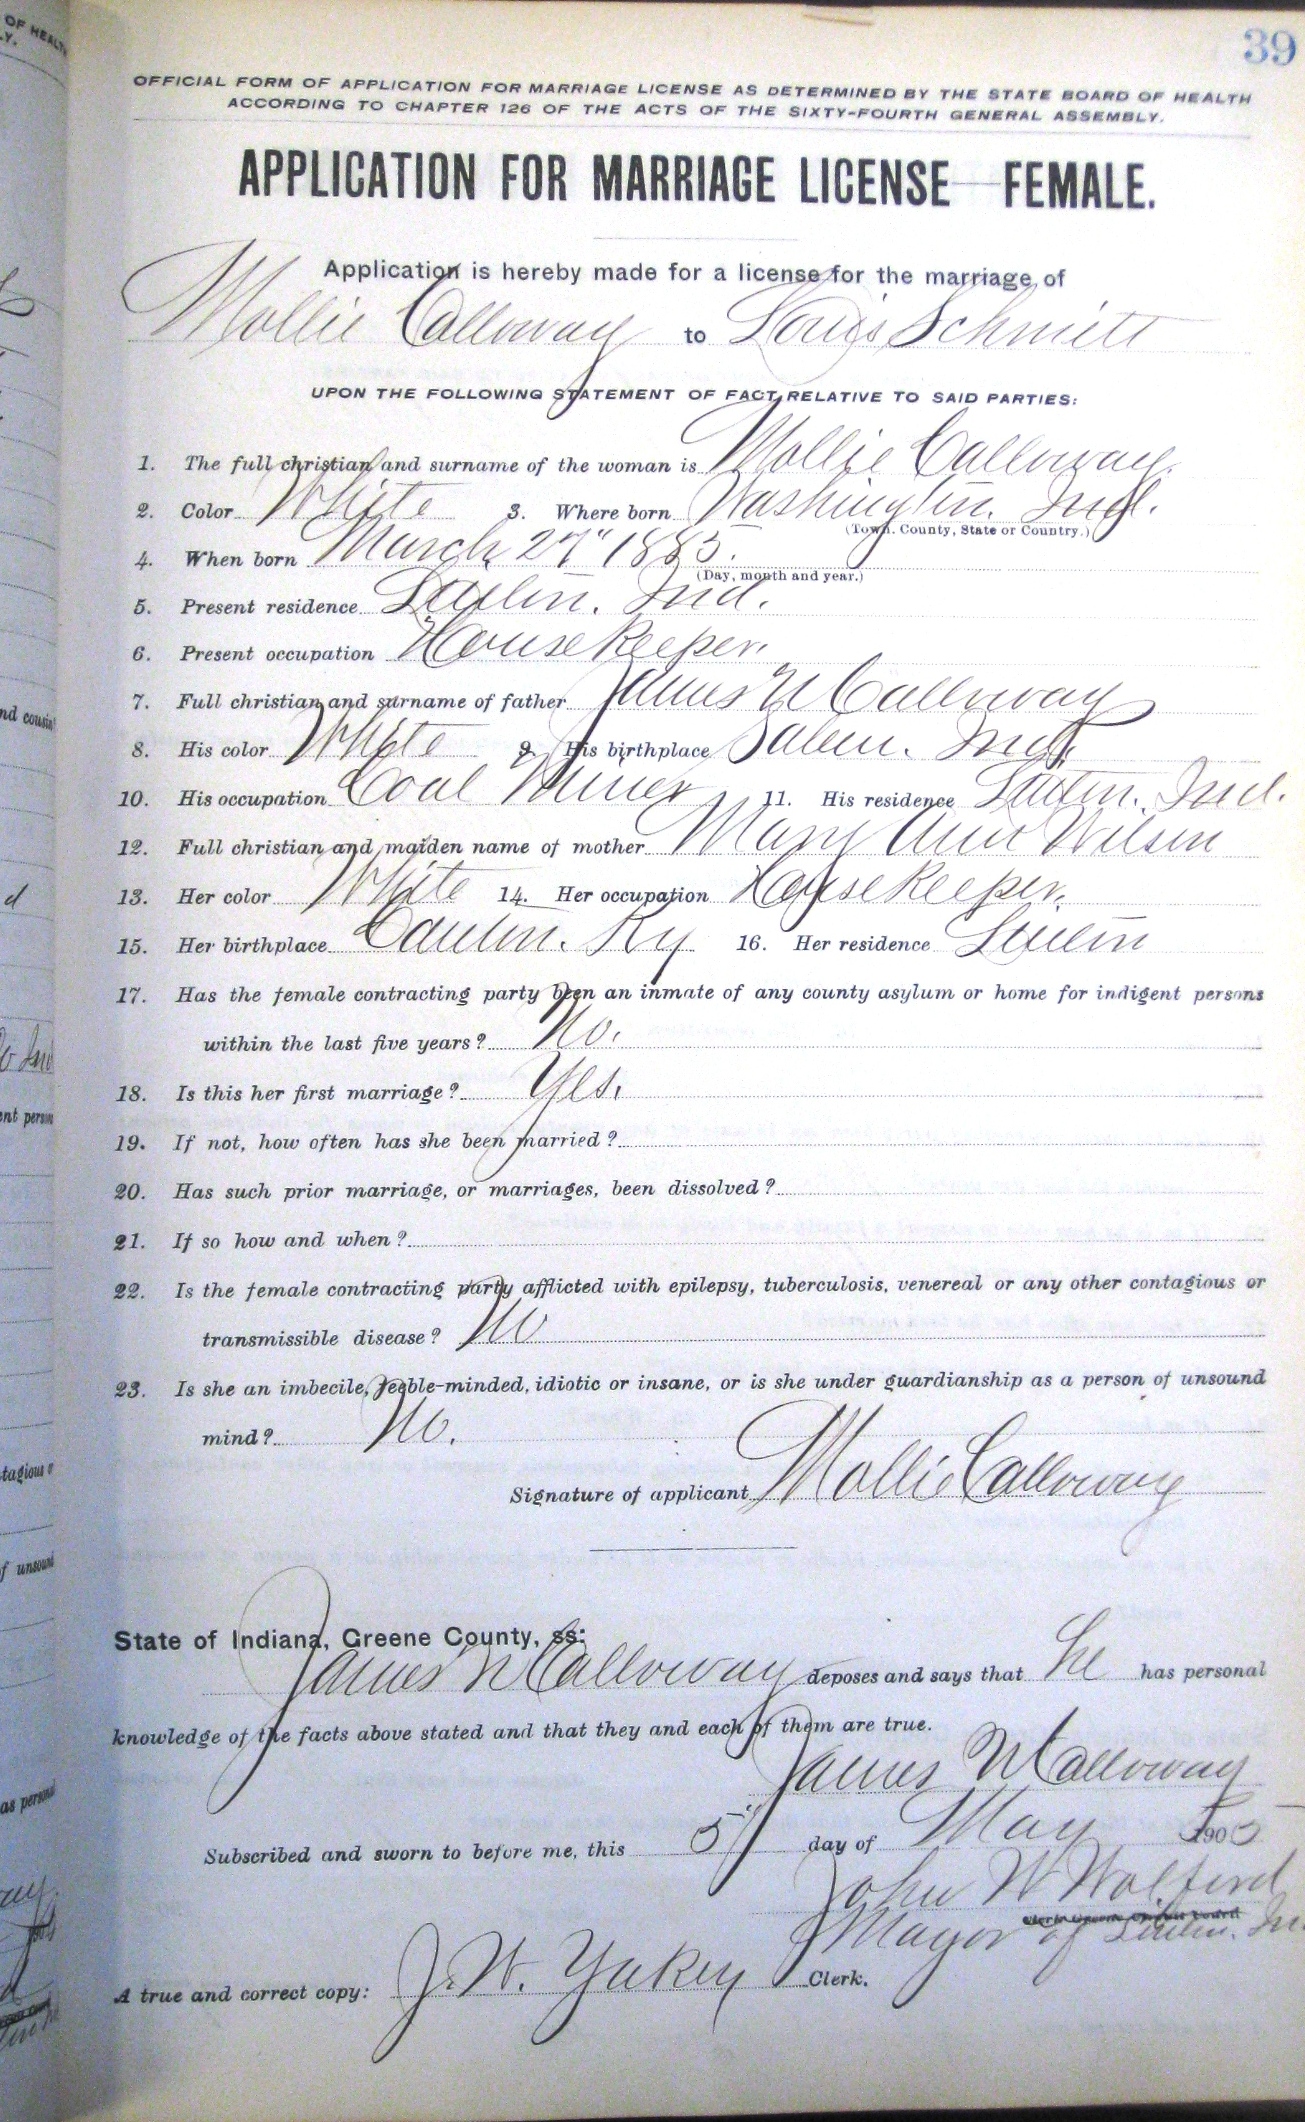 39
OFFICIAL FORM OF APPLICATION FOR MARRIAGE LICENSE AS DETERMINED BY THE STATE BOARD OF HEALTH
ACCORDING TO CHAPTER 126 OF THE ACTS OF THE SIXTY-FOURTH GENERAL ASSEMBLY.
APPLICATION FOR MARRIAGE LICENSE—FEMALE.
Application is hereby made for a license for the marriage of
Mollie Calloway to Louis Schmitt
UPON THE FOLLOWING STATEMENT OF FACT RELATIVE TO SAID PARTIES:
1. The full christian and surname of the woman is Mollie Calloway.
2. Color White 3. Where born Washington. Ind.
(Town, County, State or Country.)
4. When born March 27" 1885.
(Day, month and year.)
5. Present residence Linton. Ind.
6. Present occupation Housekeeper.
7. Full christian and surname of father James N Calloway
8. His color White 9. His birthplace Salem. Ind.
10. His occupation Coal Miner 11. His residence Linton. Ind.
12. Full christian and maiden name of mother Mary Ann Wilson
13. Her color White 14. Her occupation Housekeeper.
15. Her birthplace Ky 16. Her residence Linton
17. Has the female contracting party been an inmate of any county asylum or home for indigent persons
within the last five years? No.
18. Is this her first marriage? Yes.
19. If not, how often has she been married?
20. Has such prior marriage, or marriages, been dissolved?
21. If so how and when?
22. Is the female contracting party afflicted with epilepsy, tuberculosis, venereal or any other contagious or
transmissible disease? No
23. Is she an imbecile, feeble-minded, idiotic or insane, or is she under guardianship as a person of unsound
mind? No.
Signature of applicant Mollie Calloway
State of Indiana, Greene County, ss:
James N Calloway deposes and says that he has personal
knowledge of the facts above stated and that they and each of them are true.
James N Calloway
Subscribed and sworn to before me, this 5" day of May 1905
John W Wolford
Mayor of Linton. Ind
A true and correct copy: J. W. Yakey Clerk.